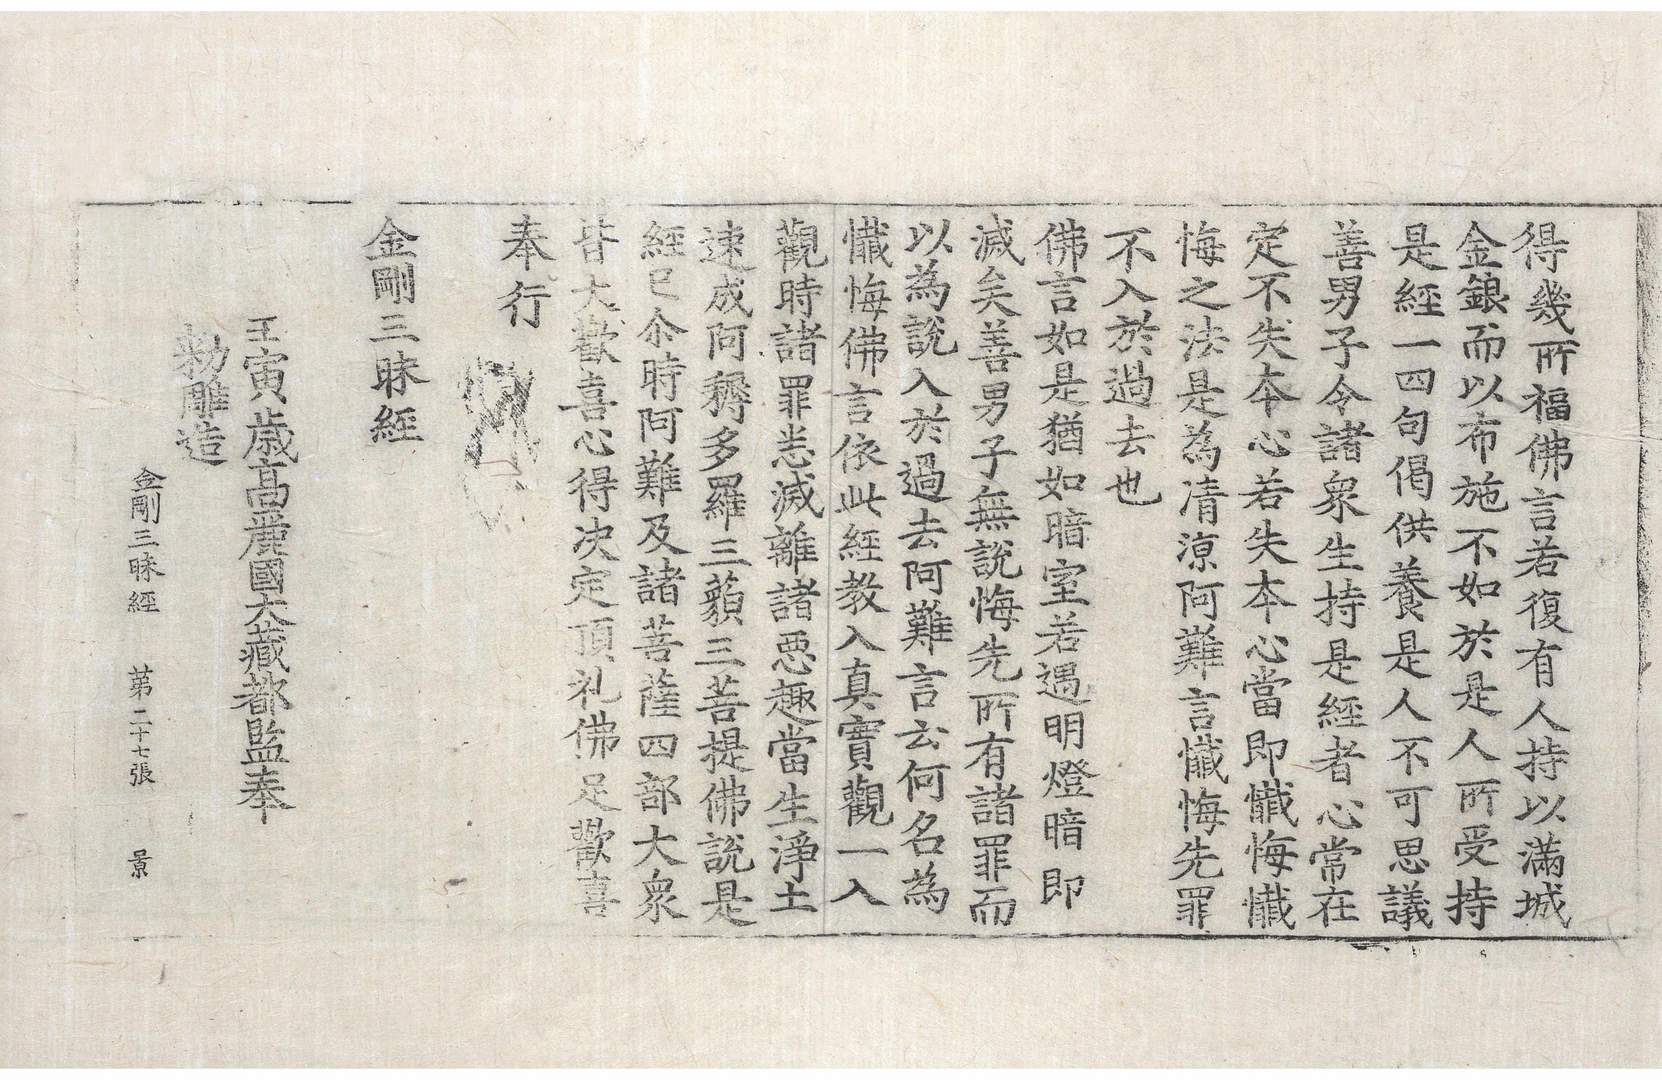 得幾所福佛言若復有人持以滿城
金銀而以布施不如於是人所受持
是經一四句偈供養是人不可思議
善男子令諸衆生持是經者心常在
定不失本心若失本心當即懺悔懺
悔之法是為清涼阿難言懺悔先罪
不入於過去也
佛言如是猶如暗室若遇明燈暗即
滅矣善男子無說悔先所有諸罪而
以為說入於過去阿難言云何名為
懺悔佛言依此經教入真實觀一入
觀時諸罪悉滅離諸惡趣當生淨土
速成阿耨多羅三藐三菩提佛說是
經已尒時阿難及諸菩薩四部大衆
皆大歡喜心得决定頂礼佛足歡喜
奉行
金剛三昧經
壬寅歲高麗國大藏都監奉
勑雕造
金剛三昧經 第二十七張 景